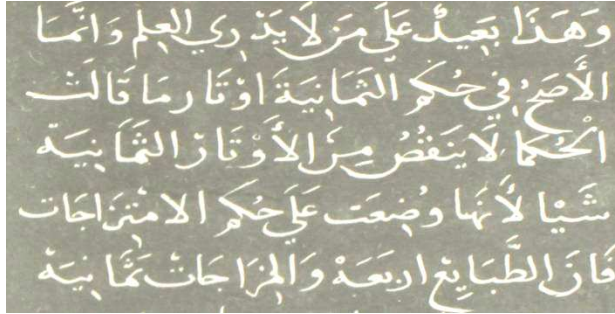 وَهَذَا بَعِيدٌ عَلَى مَن لَا يَدْرِي العِلم وَانَّمَا
الأَصَحُ فِي حُكمِ الثَمَانِيَةَ اوْتَار مَا قَالَت
الْحُكمَا لَا يَنقُصُ مِنَ الأَوْتَارِ الثَمَانِيَة
شَيْا لأَنهَا وُضِعَت عَلَى حُكم الامْتِزَاجَات
فَانَ الطَّبَايِع اربَعَة وَالمِزَاجَات ثَمَانِيَة